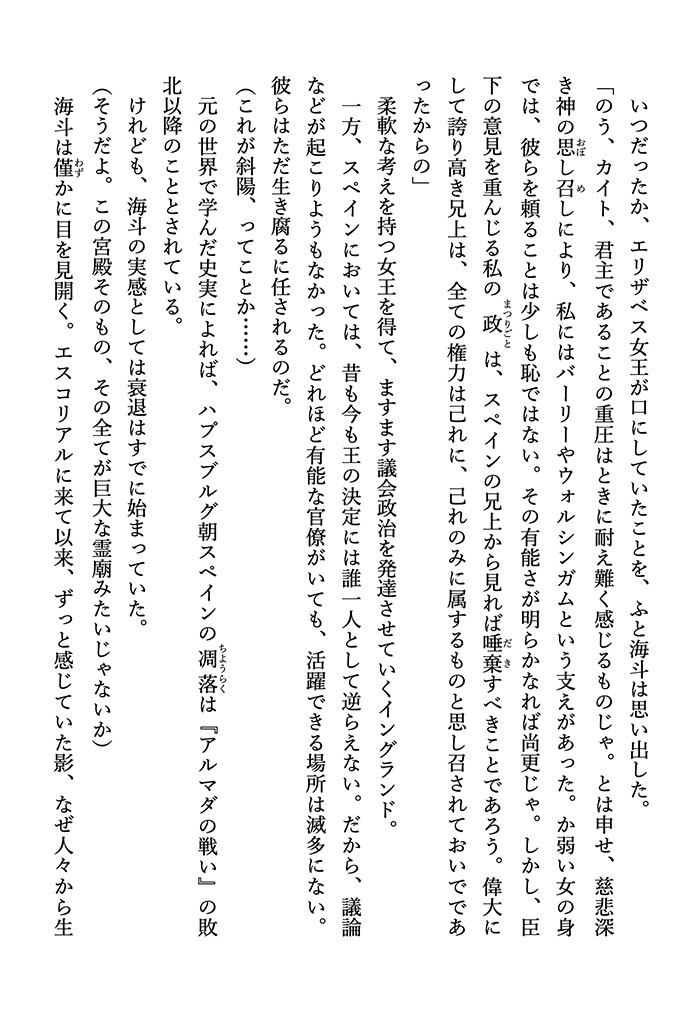 いつだったか、エリザベス女王が口にしていたことを、ふと海斗は思い出した。
「のう、カイト、君主であることの重圧はときに耐え難く感じるものじゃ。とは申せ、慈悲深
き神の思し召しにより、私にはバーリーやウォルシンガムという支えがあった。か弱い女の身
では、彼らを頼ることは少しも恥ではない。その有能さが明らかなれば尚更じゃ。しかし、臣
下の意見を重んじる私の政は、スペインの兄上から見れば唾棄すべきことであろう。偉大に
して誇り高き兄上は、全ての権力は己れに、己れのみに属するものと思し召されておいでであ
ったからの」
柔軟な考えを持つ女王を得て、ますます議会政治を発達させていくイングランド。
一方、スペインにおいては、昔も今も王の決定には誰一人として逆らえない。だから、議論
などが起こりようもなかった。どれほど有能な官僚がいても、活躍できる場所は滅多にない。
彼らはただ生き腐るに任されるのだ。
（これが斜陽、ってことか……）
元の世界で学んだ史実によれば、ハプスブルグ朝スペインの凋落は『アルマダの戦い』の敗
北以降のこととされている。
けれども、海斗の実感としては衰退はすでに始まっていた。
（そうだよ。この宮殿そのもの、その全てが巨大な霊廟みたいじゃないか）
海斗は僅かに目を見開く。エスコリアルに来て以来、ずっと感じていた影、なぜ人々から生